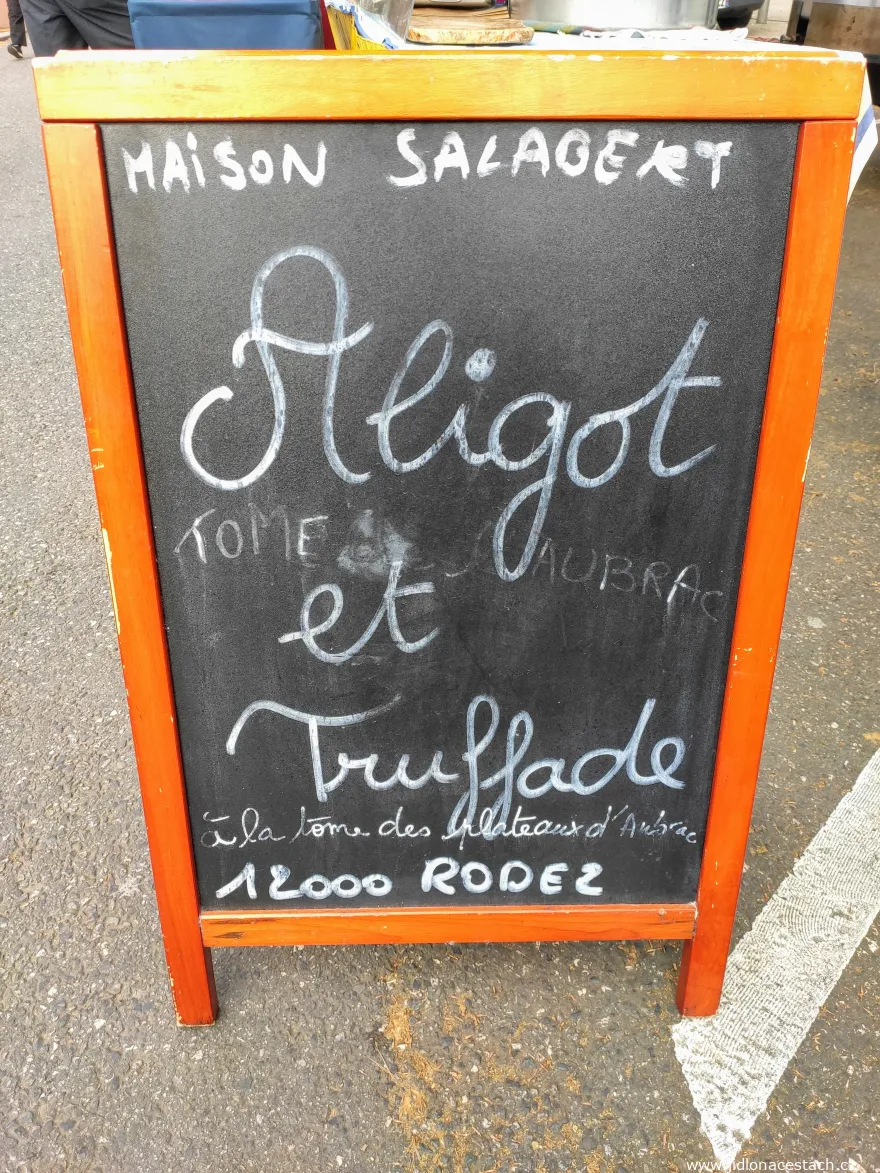 MAiSON SALABERT
Aligot
TOME AUBRAC
et
Truffade
à la tome des plateaux d'Aubrac
12000 RODEZ
www.jidlonacestach.cz